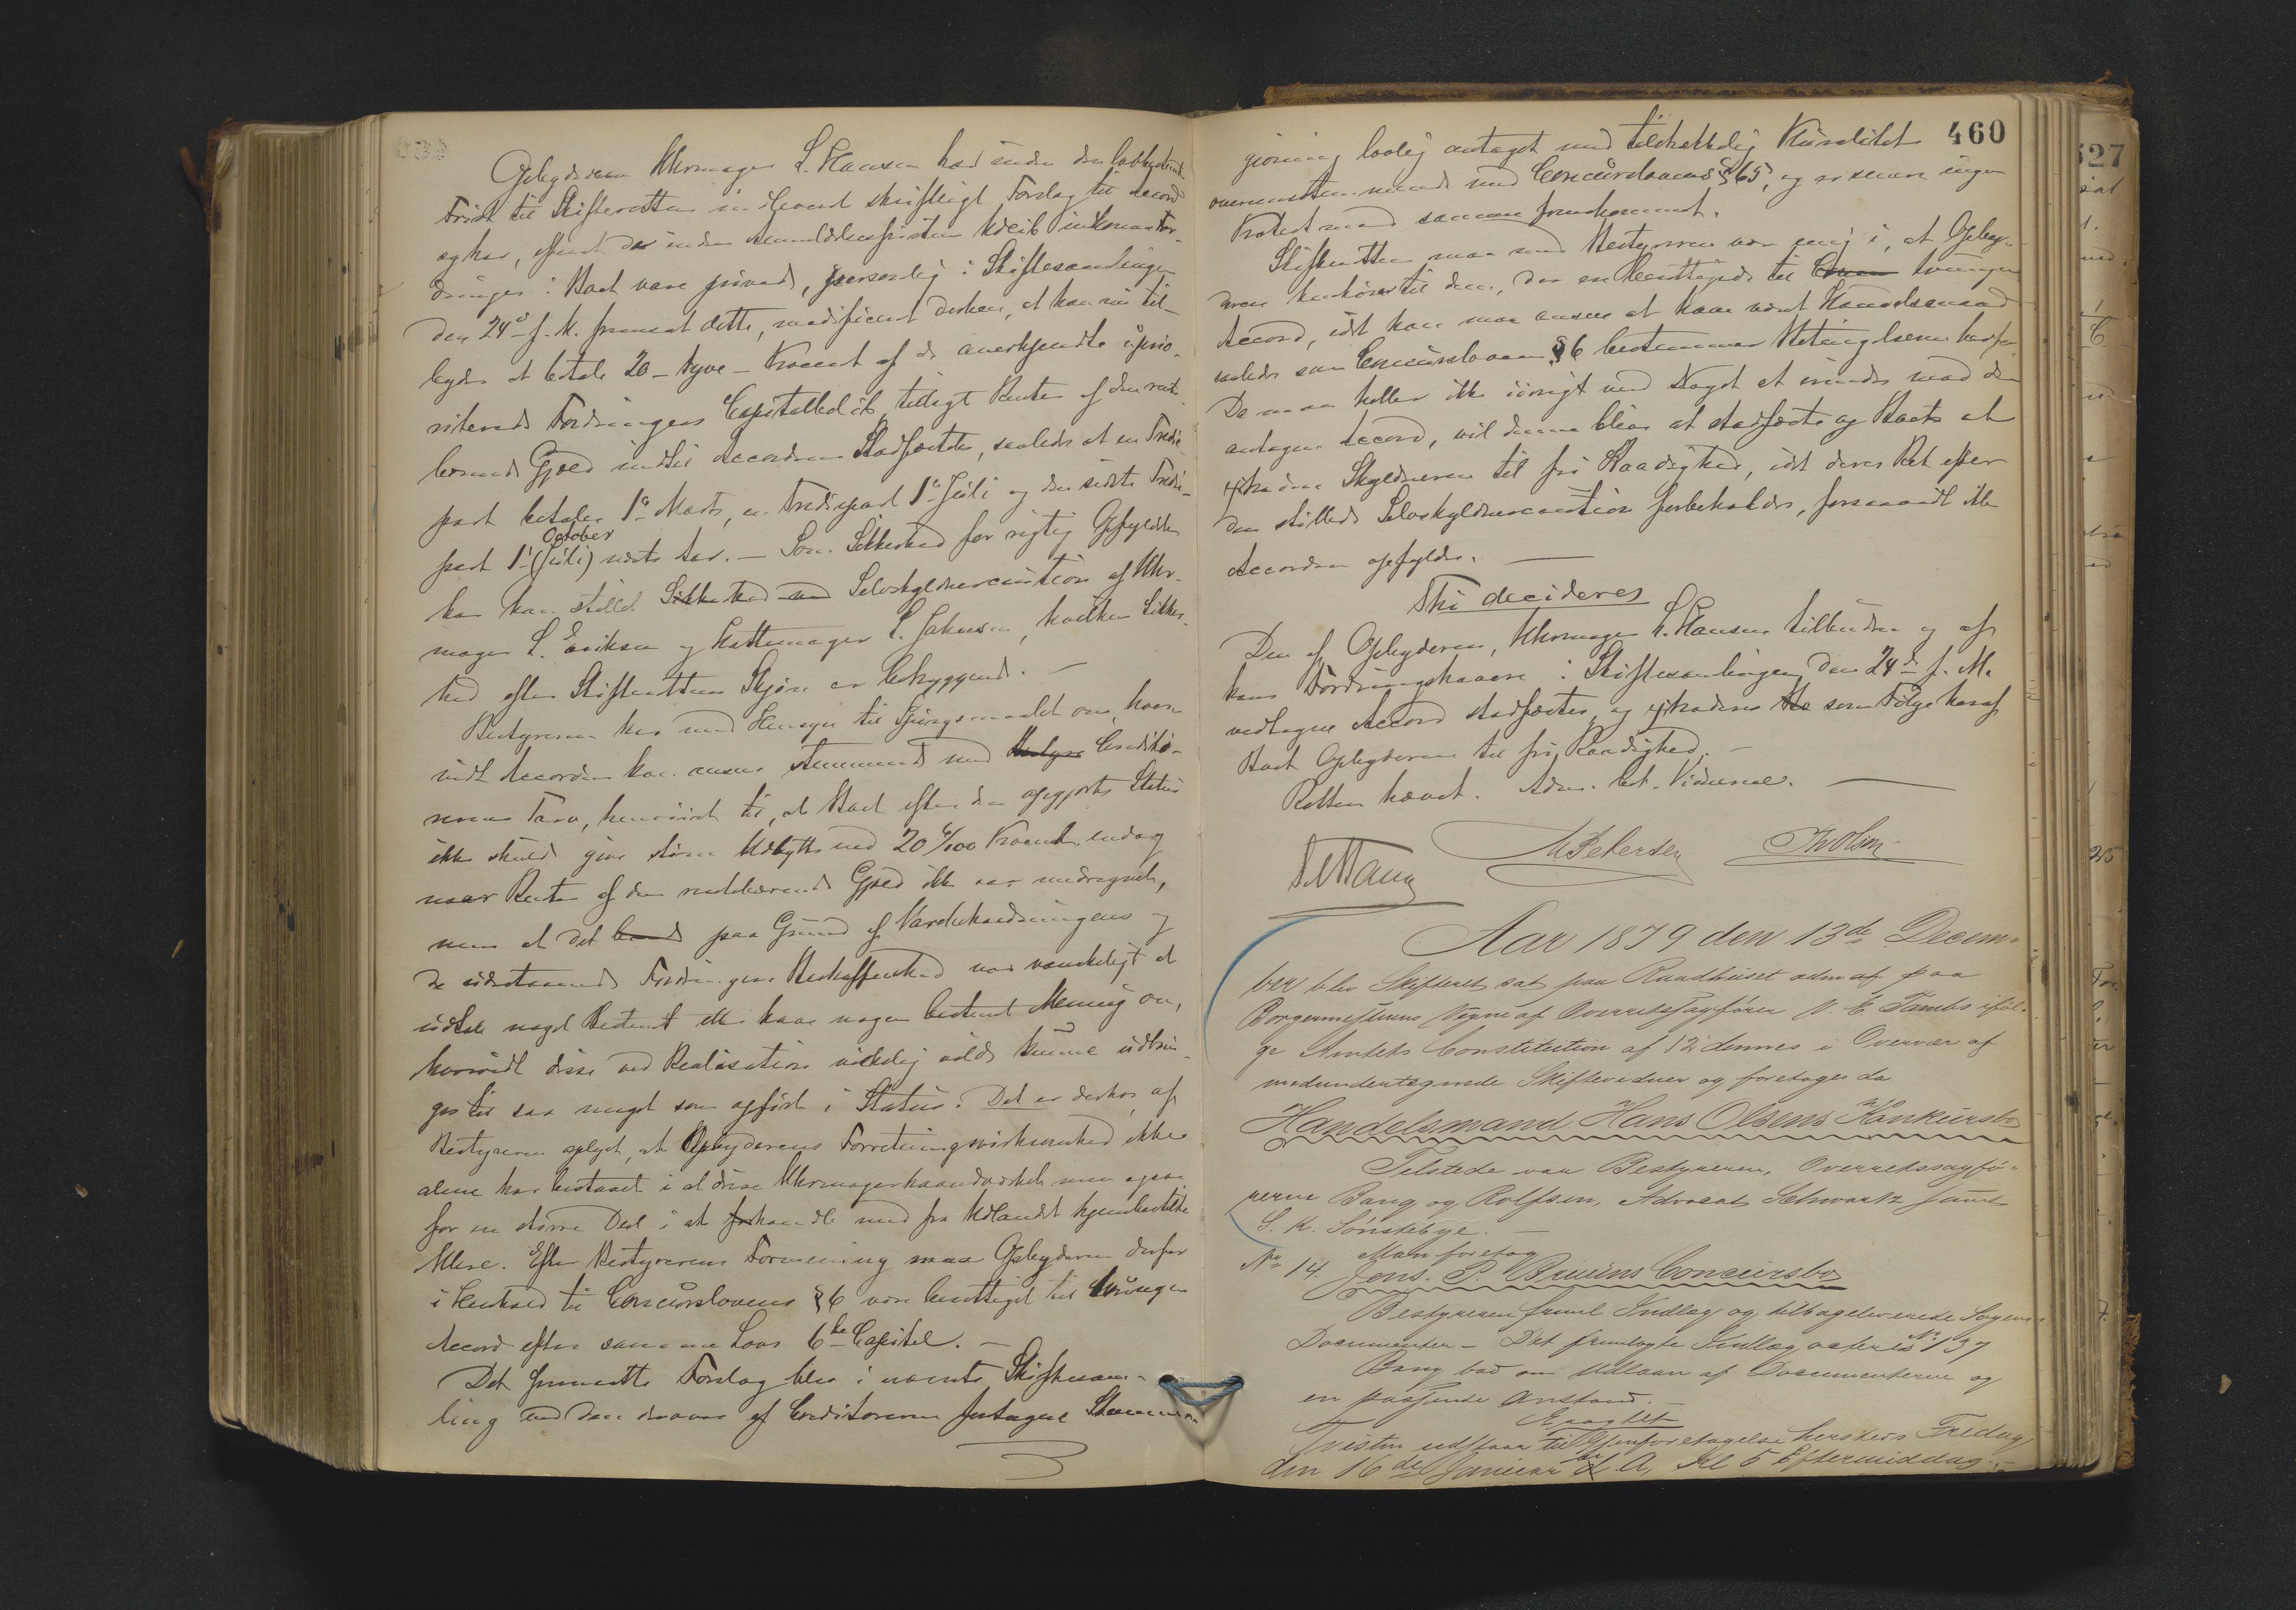 Opbyderen Uhrmager L. Hansen har inden den lovbestemte
Frist til Skifteretten indleveret skriftligt Forslag til Accord
og har, efterat de inden Anmeldelsesfristen til indkomne For-
dringer i Boet vare prøvede, personlig i Skiftesamlingen
den 24de f. M. fremsat dette, modificeret derhen, at han nu til-
byder at betale 20 - tyve - Procent af de anerkjendte uprio-
riterede Fordringers Capitalbeløb, tillagt Renter af den rente-
bærende Gjæld indtil Accordens Stadfæstelse, saaledes at en Tredie-
part betales 1ste Marts, en Trediepart 1ste Juli og den sidste Tredie-
October
part 1ste (Juli) næste Aar. - Som Sikkerhed for rigtig Opfyldelse
har han stillet Sikkerhed ved Selvskyldnercaution af Uhr-
mager L. Eriksen og Hattemager L. Jakobsen, hvilken Sikker-
hed efter Skifterettens Skjøn er betryggende. -
Bestyreren har med Hensyn til Spørgsmaalet om, hvor-
vidt Accorden kan ansees stemmende med Credito-
rernes Tarv, henviist til, at Boet efter den opgjorte Status
ikke skulde give større Udbytte end 20 6/100 Procent endog
naar Renter af den rentebærende Gjæld ikke var medregnet,
men at det paa Grund af Varebeholdningens og
de udestaaende Fordringers Beskaffenhed var vanskeligt at
udtale noget Bestemt eller have nogen bestemt Mening om,
hvorvidt disse ved Realisation virkelig vilde kunne udbrin-
ges til saa meget som opført i Status. Det er derhos af
Bestyreren oplyst, at Opbyderens Forretningsvirksomhed ikke
alene har bestaaet i at drive Uhrmagerhaandværket men ogsaa
for en større Deel i at forhandle med fra Udlandet hjembestilte
Uhre. Efter Bestyrerens Formening maa Opbyderen derfor
i Henhold til Concurslovens § 6 være berettiget til tvungen
Accord efter samme Lovs 6te Capitel. -
Det fremsatte Forslag blev i nævnte Skiftesam-
ling ved den derover af Creditorerne foretagne Stemme-
460
givning lovlig antaget med tilstrækkelig Pluralitet
overensstemmende med Concurslovens § 65, og er senere ingen
Protest mod samme fremkommet.
Skifteretten maa med Bestyreren være enig i, at Opbyde-
ren henhører til dem, der er berettigede til tvungen
Accord, idet han maa ansees at have været Handelsmand
saaledes som Concursloven § 6 bestemmer Betingelserne herfor.
Da man heller ikke iøvrigt ved Noget at erindre mod den
antagne Accord, vil denne blive at stadfæste og Boet at
extradere Skyldneren til fri Raadighed, idet deres Ret efter
den stillede Selvskyldnercaution forbeholdes, forsaavidt ikke
Accorden opfyldes. -
Thi decideres
Den af Opbyderen, Uhrmager L. Hansen tilbudne og af
hans Fordringshavere i Skiftesamlingen den 24de f. M.
vedtagne Accord stadfæstes, og extraderes som Følge heraf
Boet Opbyderen til fri Raadighed. -
Retten hævet. Adm. Bet. Vidnerne. -
M Petersen Th Olsen
Aar 1879 den 13de Decem-
ber blev Skifteret sat paa Raadhuset adm af paa
Borgermesterens Vegne af Overretssagfører N. C. Tambs iføl-
ge Amtets Constitution af 12 dennes i Overvær af
medundertegnede Skiftevidner og foretoges da
Handelsmand Hans Olsens Konkursbo
Tilstede var Bestyreren, Overretssagfø-
rerne Bang og Rolfsen, Advocat Schwartz samt
S. K. Sønstebye. -
Man foretog
No 14. Jens. P. Bruuns Concursbo
Bestyreren freml Indlæg og tilbageleverede Sagens
Documenter - Det fremlagte Indlæg acteres No 137
Bang bad om Udlaan af Documenterne og
en passende Anstand. -
Eragtet
Tvisten udstaar til Gjenforetagelse hersteds Fredag
den 16de Januar n. A. Kl 5 Eftermiddag. -